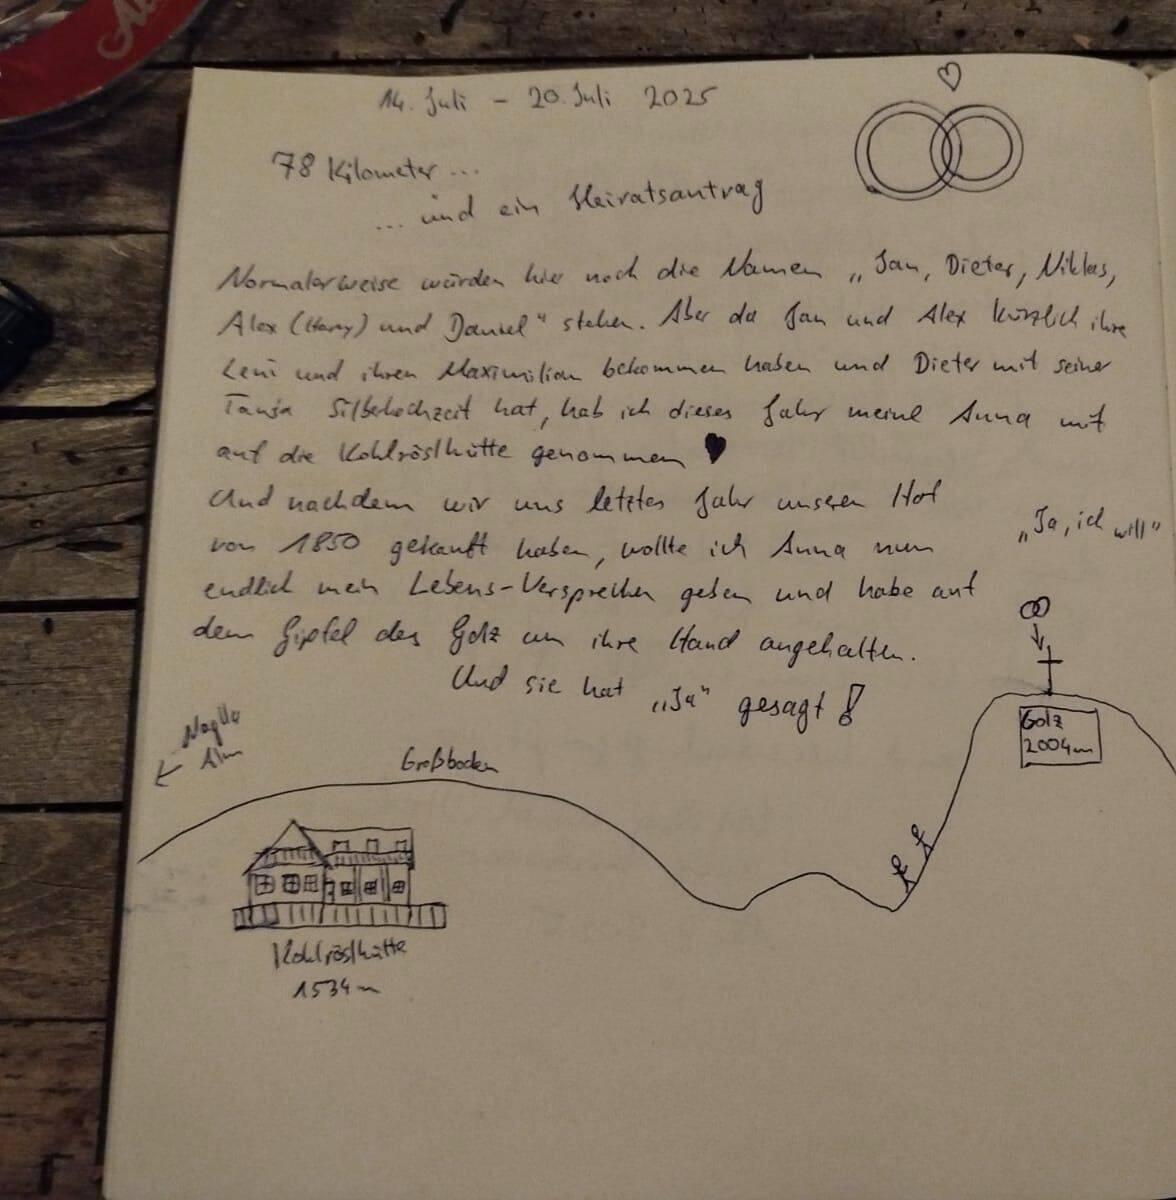 14. Juli – 20. Juli 2025
78 Kilometer...
... und ein Heiratsantrag
Normalerweise würden hier noch die Namen „Jan, Dieter, Niklas,
Alex (Harry) und Daniel" stehen. Aber da Jan und Alex kürzlich ihre
Leni und ihren Maximilian bekommen haben und Dieter mit seiner
Tanja Silberhochzeit hat, hab ich dieses Jahr meine Anna mit
auf die Kohlröslhütte genommen
Und nachdem wir uns letztes Jahr unseren Hof
von 1850 gekauft haben, wollte ich Anna nun
endlich mein Lebens-Versprechen geben und habe auf
dem Gipfel des Golz um ihre Hand angehalten.
Und sie hat „Ja" gesagt!
„Ja, ich will"
Golz
2004m
Alm
Großboden
Kohlröslhütte
1534m